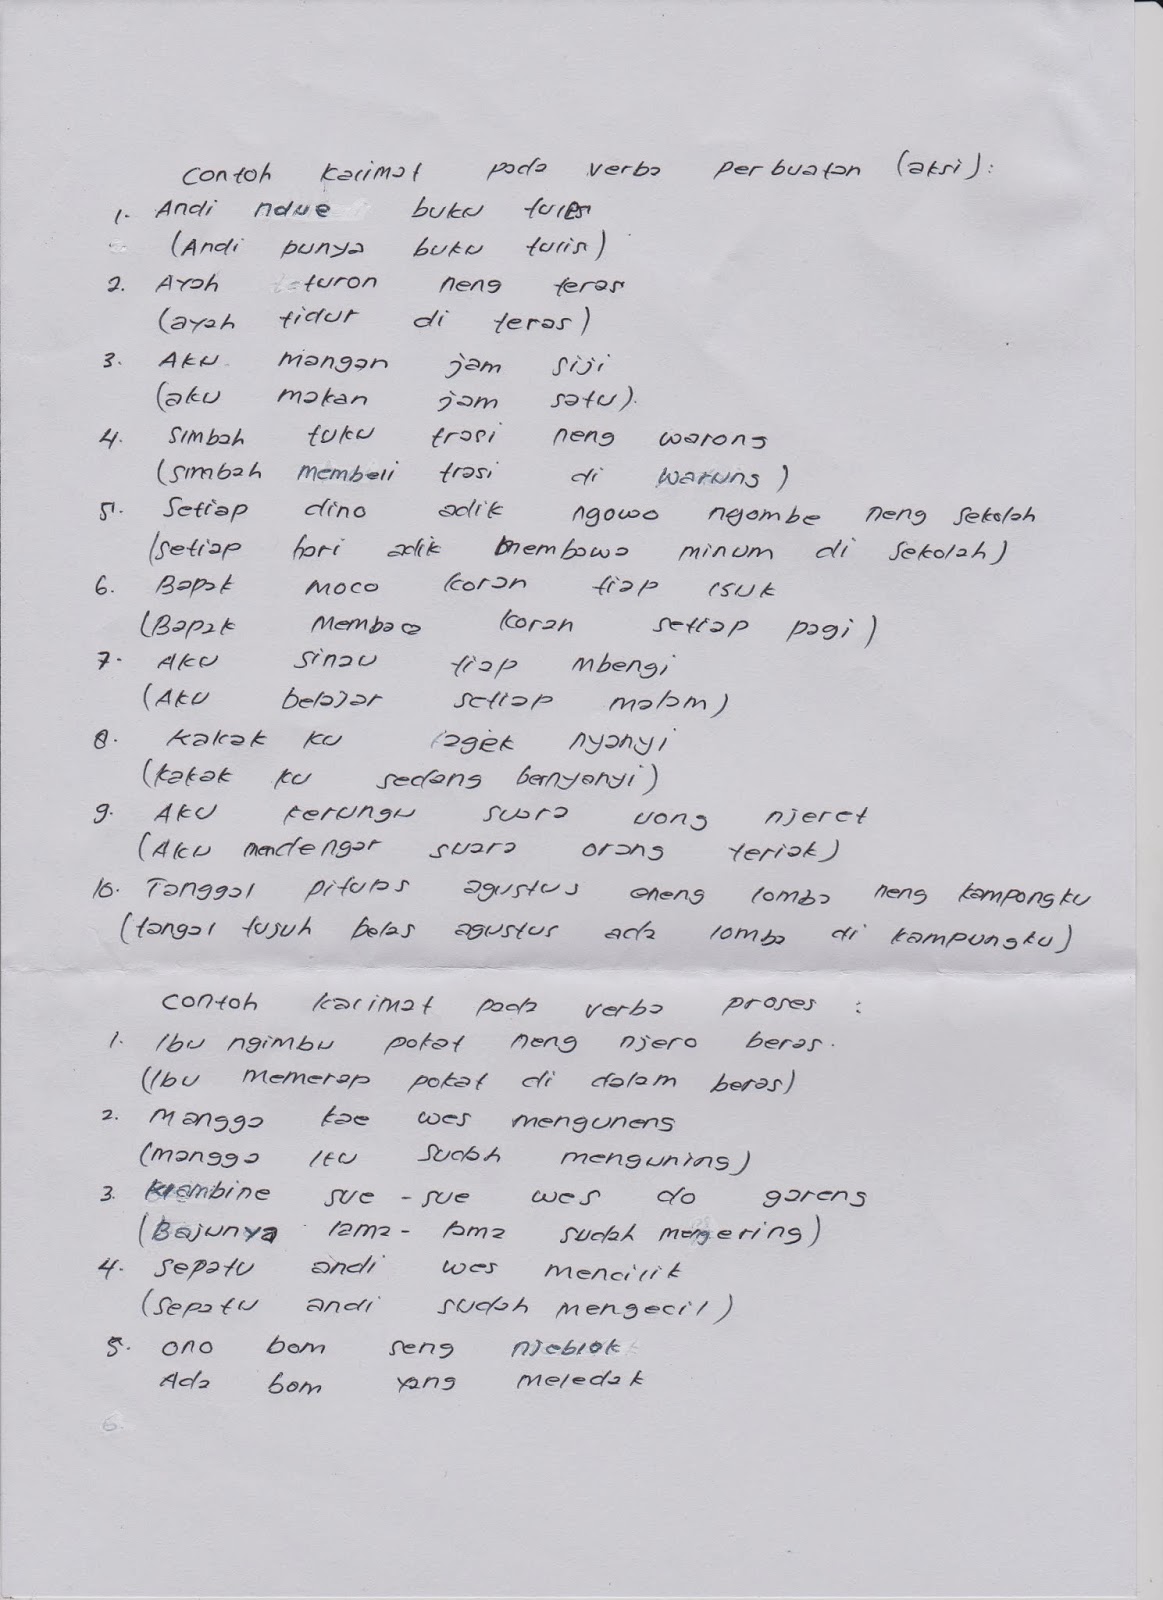 contoh kalimat pada verba perbuatan (aksi):
1. Andi ndue buku tules
(Andi punya buku tulis)
2. Ayah turon neng teras
(ayah tidur di teras)
3. Aku mangan jam siji
(aku makan jam satu).
4. Simbah tuku trasi neng warong
(simbah membeli trasi di warung)
5. Setiap dino adik ngowo ngombe neng sekolah
(setiap hari adik membawa minum di sekolah)
6. Bapak moco koran tiap isuk
(Bapak membaca koran setiap pagi)
7. Aku sinau tiap mbengi
(Aku belajar setiap malam)
8. Kakak ku lagek nyanyi
(kakak ku sedang bernyanyi)
9. Aku kerungu suara uong njeret
(Aku mendengar suara orang teriak)
10. Tanggal pitulas agustus eneng lomba neng kampongku
(tangal tujuh belas agustus ada lomba di kampungku)
contoh kalimat pada verba proses :
1. Ibu ngimbu pokat neng njero beras.
(Ibu memerap pokat di dalam beras)
2. Mangga kae wes menguneng
(mangga itu sudah menguning)
3. klambine sue-sue wes do gareng
(Bajunya lama-lama sudah mengering)
4. sepatu andi wes mencilik
(sepatu andi sudah mengecil)
5. ono bom seng njeblok
Ada bom yang meledak
6.